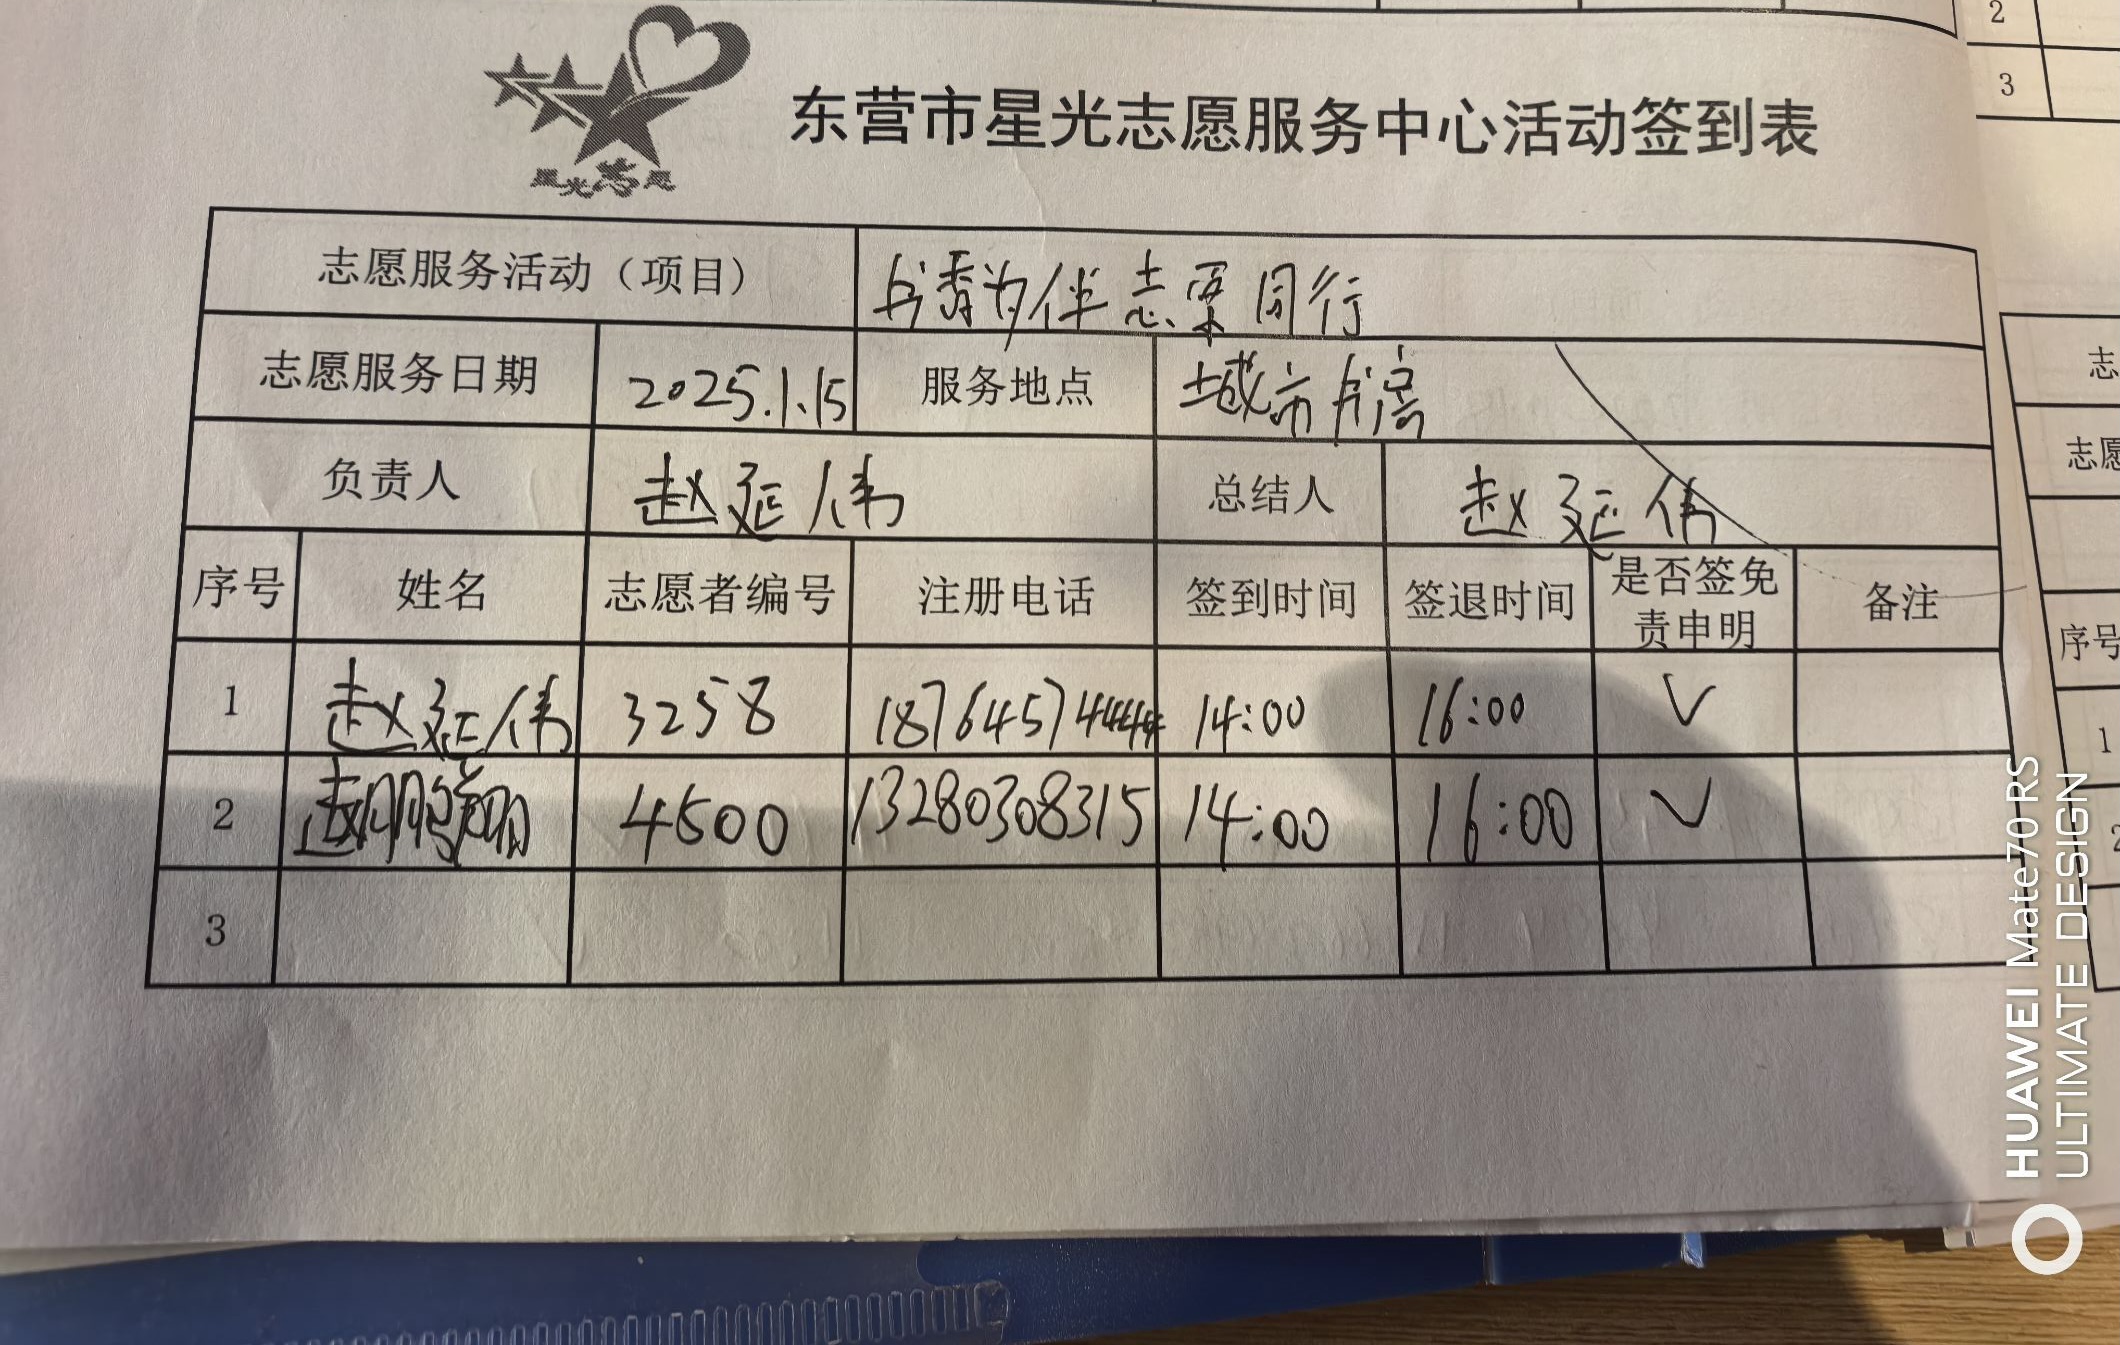 2
3
星光志愿
东营市星光志愿服务中心活动签到表
志愿服务活动（项目） 书香为伴志愿同行
志愿服务日期 2025.1.15 服务地点 城市书房
负责人 赵延伟 总结人 赵延伟
序号 姓名 志愿者编号 注册电话 签到时间 签退时间 是否签免责申明 备注
1 赵延伟 3258 18764574444 14:00 16:00 √
2 赵鹏翔 4500 13280308315 14:00 16:00 √
3
志
志愿
序号
1
2
HUAWEI Mate70 RS
ULTIMATE DESIGN